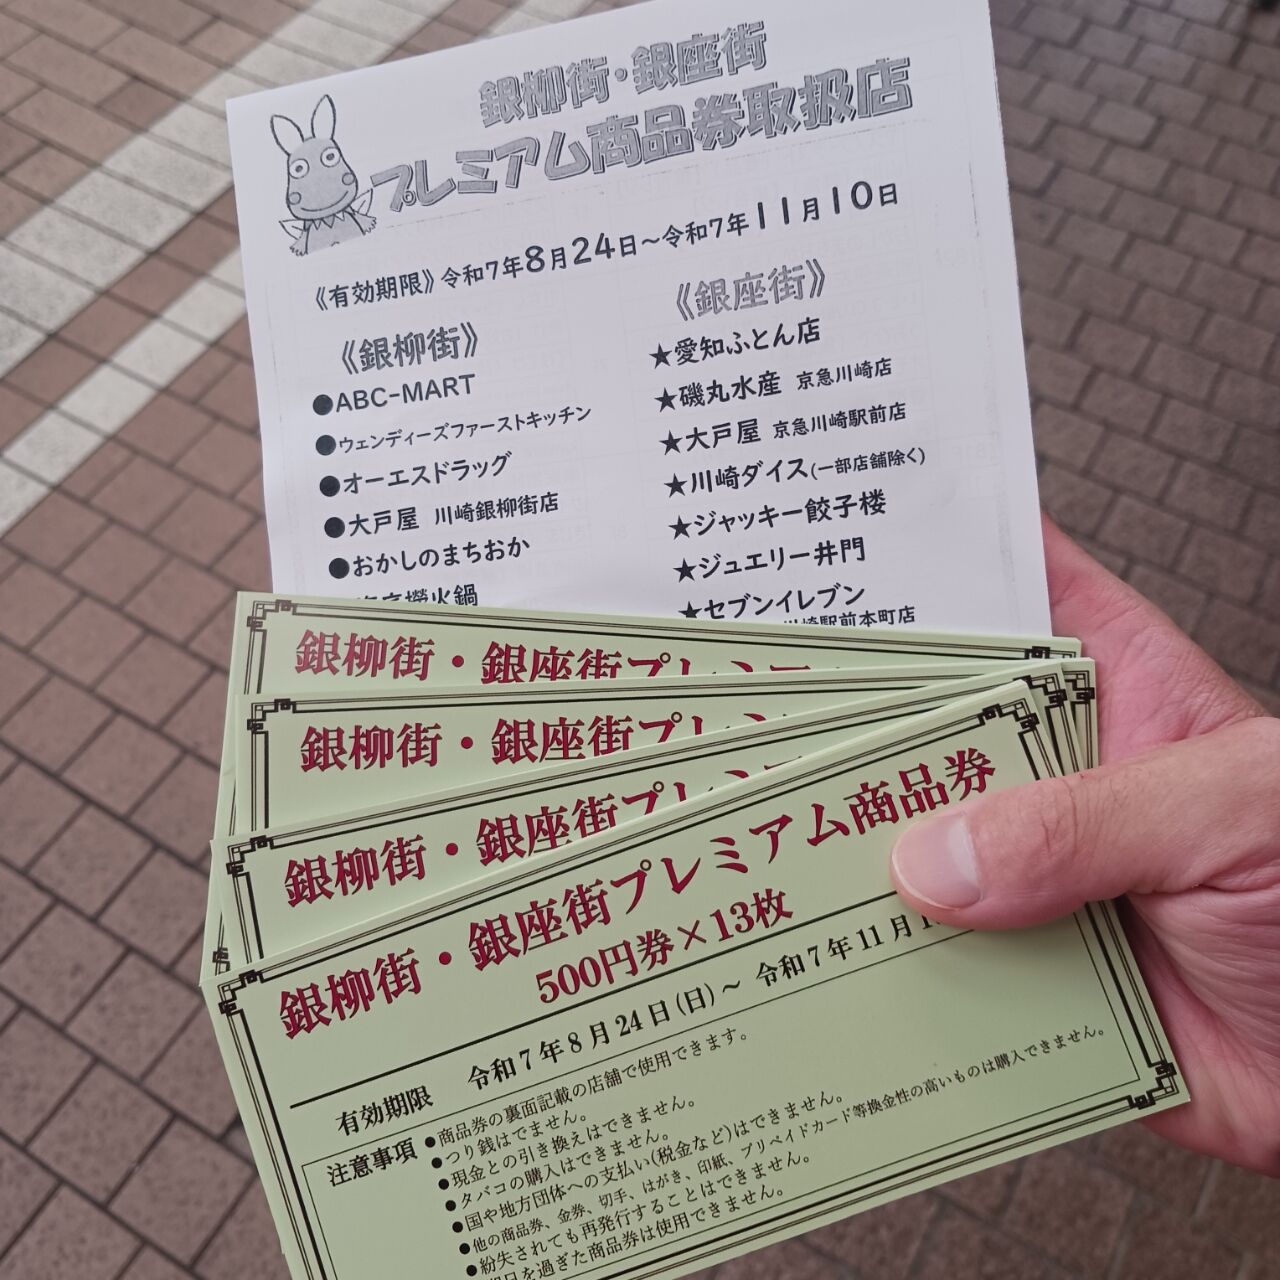 銀柳街・銀座街
プレミアム商品券取扱店
《有効期限》令和7年8月24日～令和7年11月10日
《銀柳街》
●ABC-MART
●ウェンディーズファーストキッチン
●オーエスドラッグ
●大戸屋 川崎銀柳街店
●おかしのまちおか
火鍋
《銀座街》
★愛知ふとん店
★磯丸水産 京急川崎店
★大戸屋 京急川崎駅前店
★川崎ダイス(一部店舗除く)
★ジャッキー餃子楼
★ジュエリー井門
★セブンイレブン
川崎駅前本町店
銀柳街・銀座街プレミア
銀柳街・銀座街プレミ
銀柳街・銀座街プレミ
銀柳街・銀座街プレミアム商品券
500円券×13枚
有効期限 令和7年8月24日(日)～ 令和7年11月1
注意事項
●商品券の裏面記載の店舗で使用できます。
●つり銭はでません。
●現金との引き換えはできません。
●タバコの購入はできません。
●国や地方団体への支払い(税金など)はできません。
●他の商品券、金券、切手、はがき、印紙、プリペイドカード等換金性の高いものは購入できません。
●紛失されても再発行することはできません。
を過ぎた商品券は使用できません。